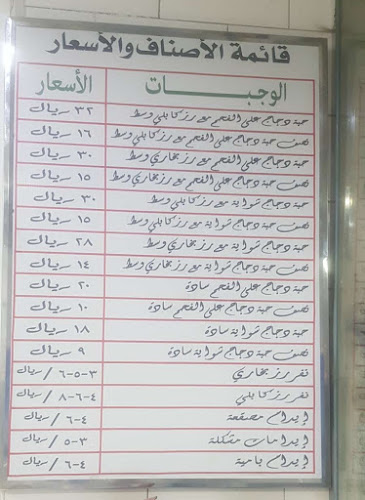 قائمة الأصناف والأسعار
الوجبات الأسعار
حبة دجاج على الفحم مع رز كابلي وسط ٣٢ ريال
نصف حبة دجاج على الفحم مع رز كابلي وسط ١٦ ريال
حبة دجاج على الفحم مع رز بخاري وسط ٣٠ ريال
نصف حبة دجاج على الفحم مع رز بخاري وسط ١٥ ريال
حبة دجاج شواية مع رز كابلي وسط ٣٠ ريال
نصف حبة دجاج شواية مع رز كابلي وسط ١٥ ريال
حبة دجاج شواية مع رز بخاري وسط ٢٨ ريال
نصف حبة دجاج شواية مع رز بخاري وسط ١٤ ريال
حبة دجاج على الفحم سادة ٢٠ ريال
نصف حبة دجاج على الفحم سادة ١٠ ريال
حبة دجاج شواية سادة ١٨ ريال
نصف حبة دجاج شواية سادة ٩ ريال
نفر رز بخاري ٣-٥-٦ / ريال
نفر رز كابلي ٤-٦-٨ / ريال
إيدام مصقعة ٤-٦ / ريال
إيدامات مشكلة ٣-٥ / ريال
إيدام بامية ٤-٦ / ريال